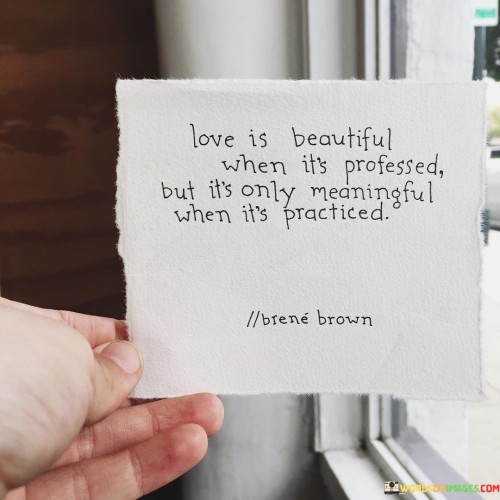 love is beautiful
when it's professed,
but it's only meaningful
when it's practiced.
//brené brown
WORDSONIMAGES.COM